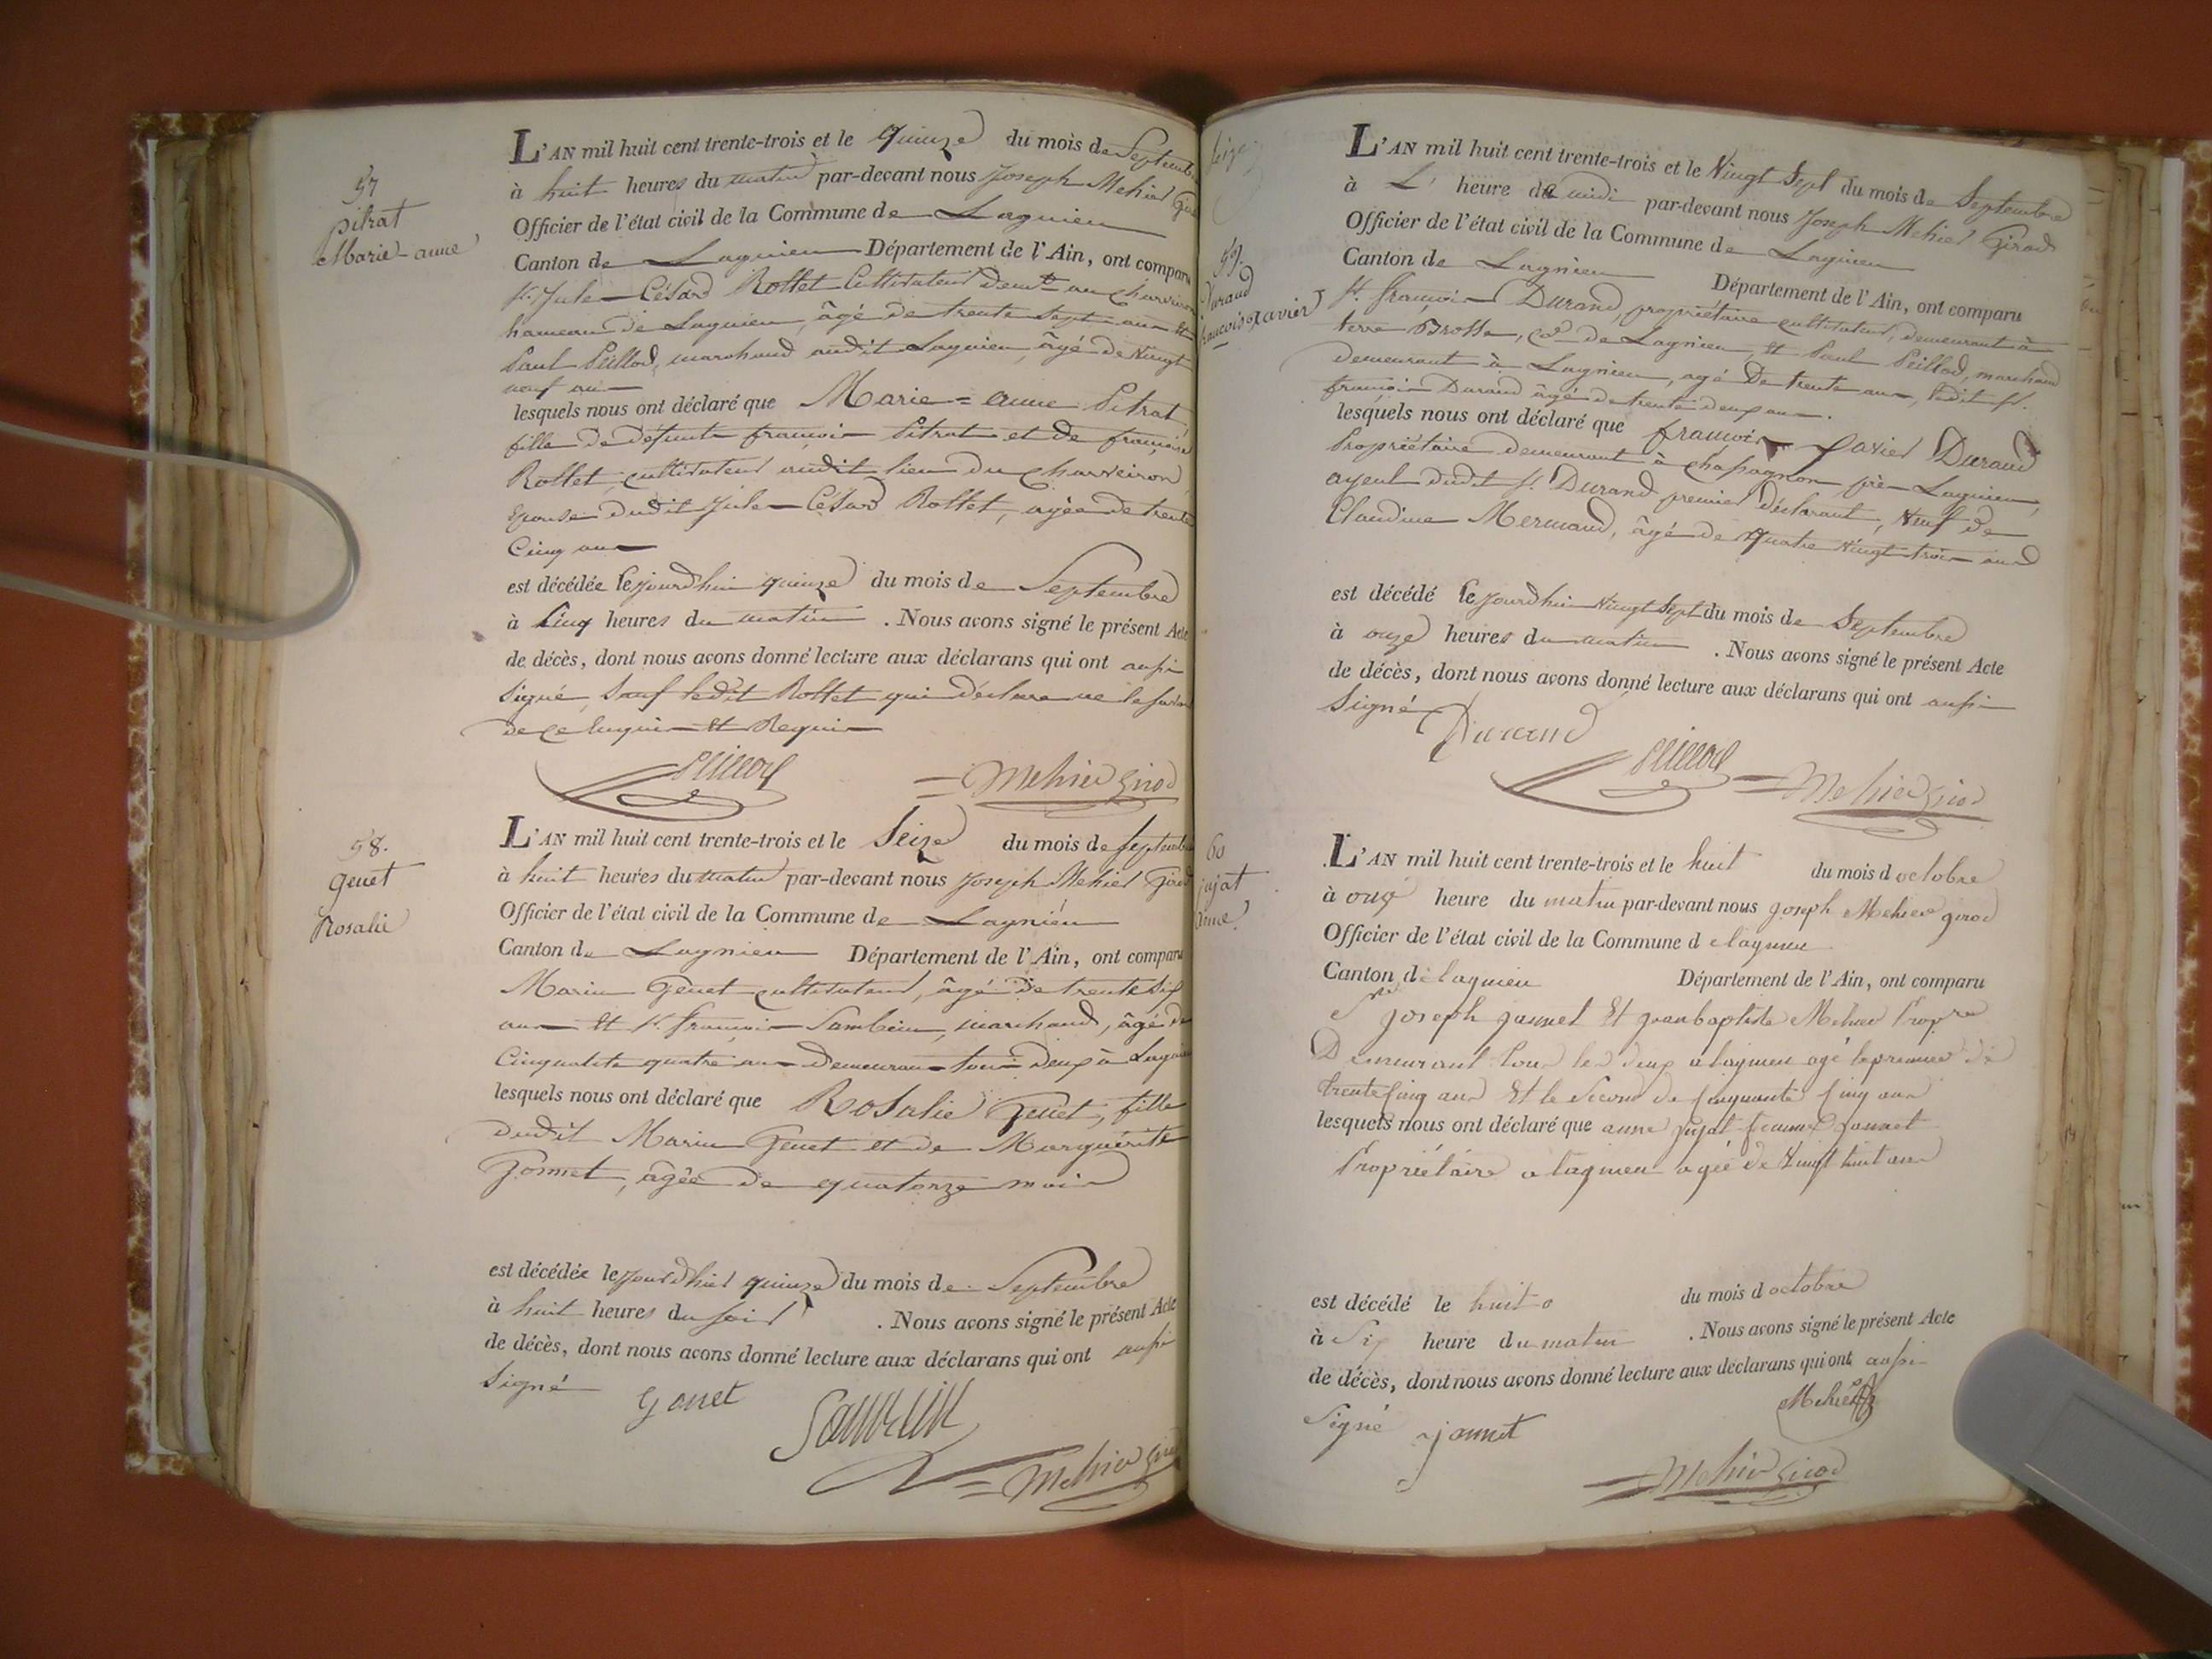 57
pitrat
Marie-anne
L'AN mil huit cent trente-trois et le quinze du mois de Septembre
à huit heures du matin par-devant nous Joseph Mehier
Officier de l'état civil de la Commune de Lagnieu
Canton de Lagnieu Département de l'Ain, ont comparu
Sr. Jule-César Rollet Cultivateur demt. au
hameau de Lagnieu, âgé de trente Sept ans Et
Paul Peillod, marchand audit Lagnieu, âgé de Vingt
neuf ans
lesquels nous ont déclaré que Marie=anne Pitrat
fille de défunts françois Pitrat et de françoise
Rollet, cultivateurs audit lieu du Charveiron,
Epouse dudit Jule-César Rollet, agée de trente
Cinq ans
est décédée le jourdhui quinze du mois de Septembre
à Cinq heures du matin . Nous avons signé le présent Acte
de décès, dont nous avons donné lecture aux déclarans qui ont aussi
signé, Sauf ledit Rollet qui déclare ne le savoir
de ce Enquis Et Requis
Peillod =Mehier Girod
58.
genet
Rosalie
L'AN mil huit cent trente-trois et le Seize du mois de Septembre
à huit heures du matin par-devant nous Joseph Mehier Girod
Officier de l'état civil de la Commune de Lagnieu
Canton de Lagnieu Département de l'Ain, ont comparu
Marin Genet cultivateur, âgé de trente Six
ans Et Sr. françois marchand, âgé de
Cinquante quatre ans Demeurans tous deux à Lagnieu
lesquels nous ont déclaré que Rosalie Genet, fille
dudit Marin Genet et de Marguérite
Gonnet, agée de quatorze mois
est décédée le jourd'hier quinze du mois de Septembre
à huit heures du soir . Nous avons signé le présent Acte
de décès, dont nous avons donné lecture aux déclarans qui ont aussi
Signé genet
=Mehier Girod
59.
Durand
françois Xavier
L'AN mil huit cent trente-trois et le Vingt Sept du mois de Septembre
à L' heure de midi par-devant nous Joseph Mehier Girod
Officier de l'état civil de la Commune de Lagnieu
Canton de Lagnieu Département de l'Ain, ont comparu
Sr. françois Durand, propriétaire cultivateur, demeurant à
terre Brosse, Cne de Lagnieu, Et Paul Peillod, marchand
demeurant à Lagnieu, agé De trente ans, ledit Sr.
françois Durand âgé de trente deux ans.
lesquels nous ont déclaré que françois Xavier Durand
Propriétaire demeurant à Chapagnon près Lagnieu,
ayeul dudit Sr. Durand premier Déclarant, Veuf de
Claudine Mermand, âgé de Quatre Vingt trois ans
est décédé le jourdhui Vingt Sept du mois de Septembre
à onze heures du matin . Nous avons signé le présent Acte
de décès, dont nous avons donné lecture aux déclarans qui ont aussi
Signé Durand
Peillod =Mehier Girod
60
jujat
anne
L'AN mil huit cent trente-trois et le huit du mois d octobre
à onze heure du matin par-devant nous joseph Mehier girod
Officier de l'état civil de la Commune d elagnieu
Canton d elagnieu Département de l'Ain, ont comparu
Sr joseph jannet Et jean baptiste Mehier Propre
Demeurant tous les deux a lagnieu agé le premier de
trente cinq ans Et le Second de cinquante cinq ans
lesquels nous ont déclaré que anne jujat femme jannet
Propriétaire a lagnieu agée de Vingt huit ans
est décédé le huit du mois d octobre
à Six heure du matin . Nous avons signé le présent Acte
de décès, dont nous avons donné lecture aux déclarans qui ont aussi
Signé jannet Mehier
=Mehier Girod